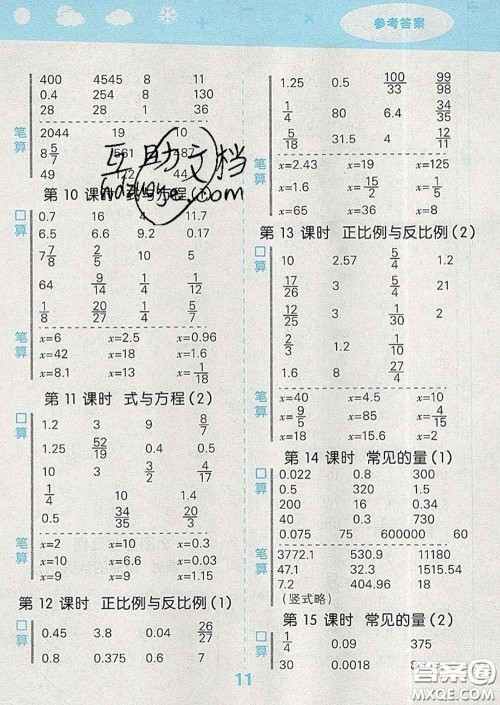 参考答案
400 4545 8 11
0.4 254 8 130
28 28 1 36
笔算
2044 19 10
8 5/7 7561 387
49 72 44
第 10 课时 式与方程(1)
口算
0.7 16 4 11.7
6.5 6.6 9.2 0.17
7 7/8 2/5 10 5
64 9/14 1/4 4/5
1/8 20/27 1/4 5/7
笔算
x=6 x=2.5 x=0.96
x=42 x=18 x=1.6
x=8.1 x=13 x=1/18
第 11 课时 式与方程(2)
口算
1.2 3 9 8/7
1.25 52/19 0.4 0.5
10 3 3/2 4/17
1/4 10 3.5
0.5 34/35 20/3
笔算
x=2 x=10 x=0.3
x=10 x=6.6 x=0.03
x=9 x=9 x=1.15
第 12 课时 正比例与反比例(1)
口算
0.45 3.8 0.04 26/27
0.8 0.375 0.6 7
1.25 0.5 100/33 99/98
1/4 80 6.4 34/35
5/18 31.5 4 125
笔算
x=2.43 x=19 x=15
x=1.6 x=15/2 x=1/5
x=65 x=36 x=8
第 13 课时 正比例与反比例(2)
口算
10 2.57 5/4 1.2
17/26 3 5/4 17
12/25 3 1/30 2
2/3 1.2 1/10
1.6 8 27/4
笔算
x=40 x=4.5 x=10
x=9/5 x=85 x=4/15
x=18 x=15.6 x=2
第 14 课时 常见的量(1)
口算
0.022 0.8 300
0.5 32 1.5
200 16 0.34
0.04 0.4 480
0.075 75 600000 60
笔算
3772.1 530.9 11180
47.1 32.3 1515.54
7.2 404.96 18
(竖式略)
第 15 课时 常见的量(2)
口算
1/4 0.09 375
30 0.0018
11
互助文档
hdzuoye.com
答案圈
MXQE.COM